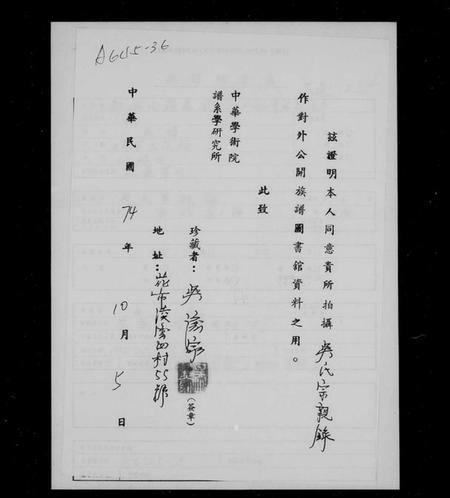 A615-36
茲證明本人同意貴所拍攝吳氏宗親錄
作對外公開族譜圖書館資料之用。
此致
中華學術院
譜系學研究所
珍藏者：吳
(簽章)
地址：花市凌雲四村55號
中華民國74年10月5日